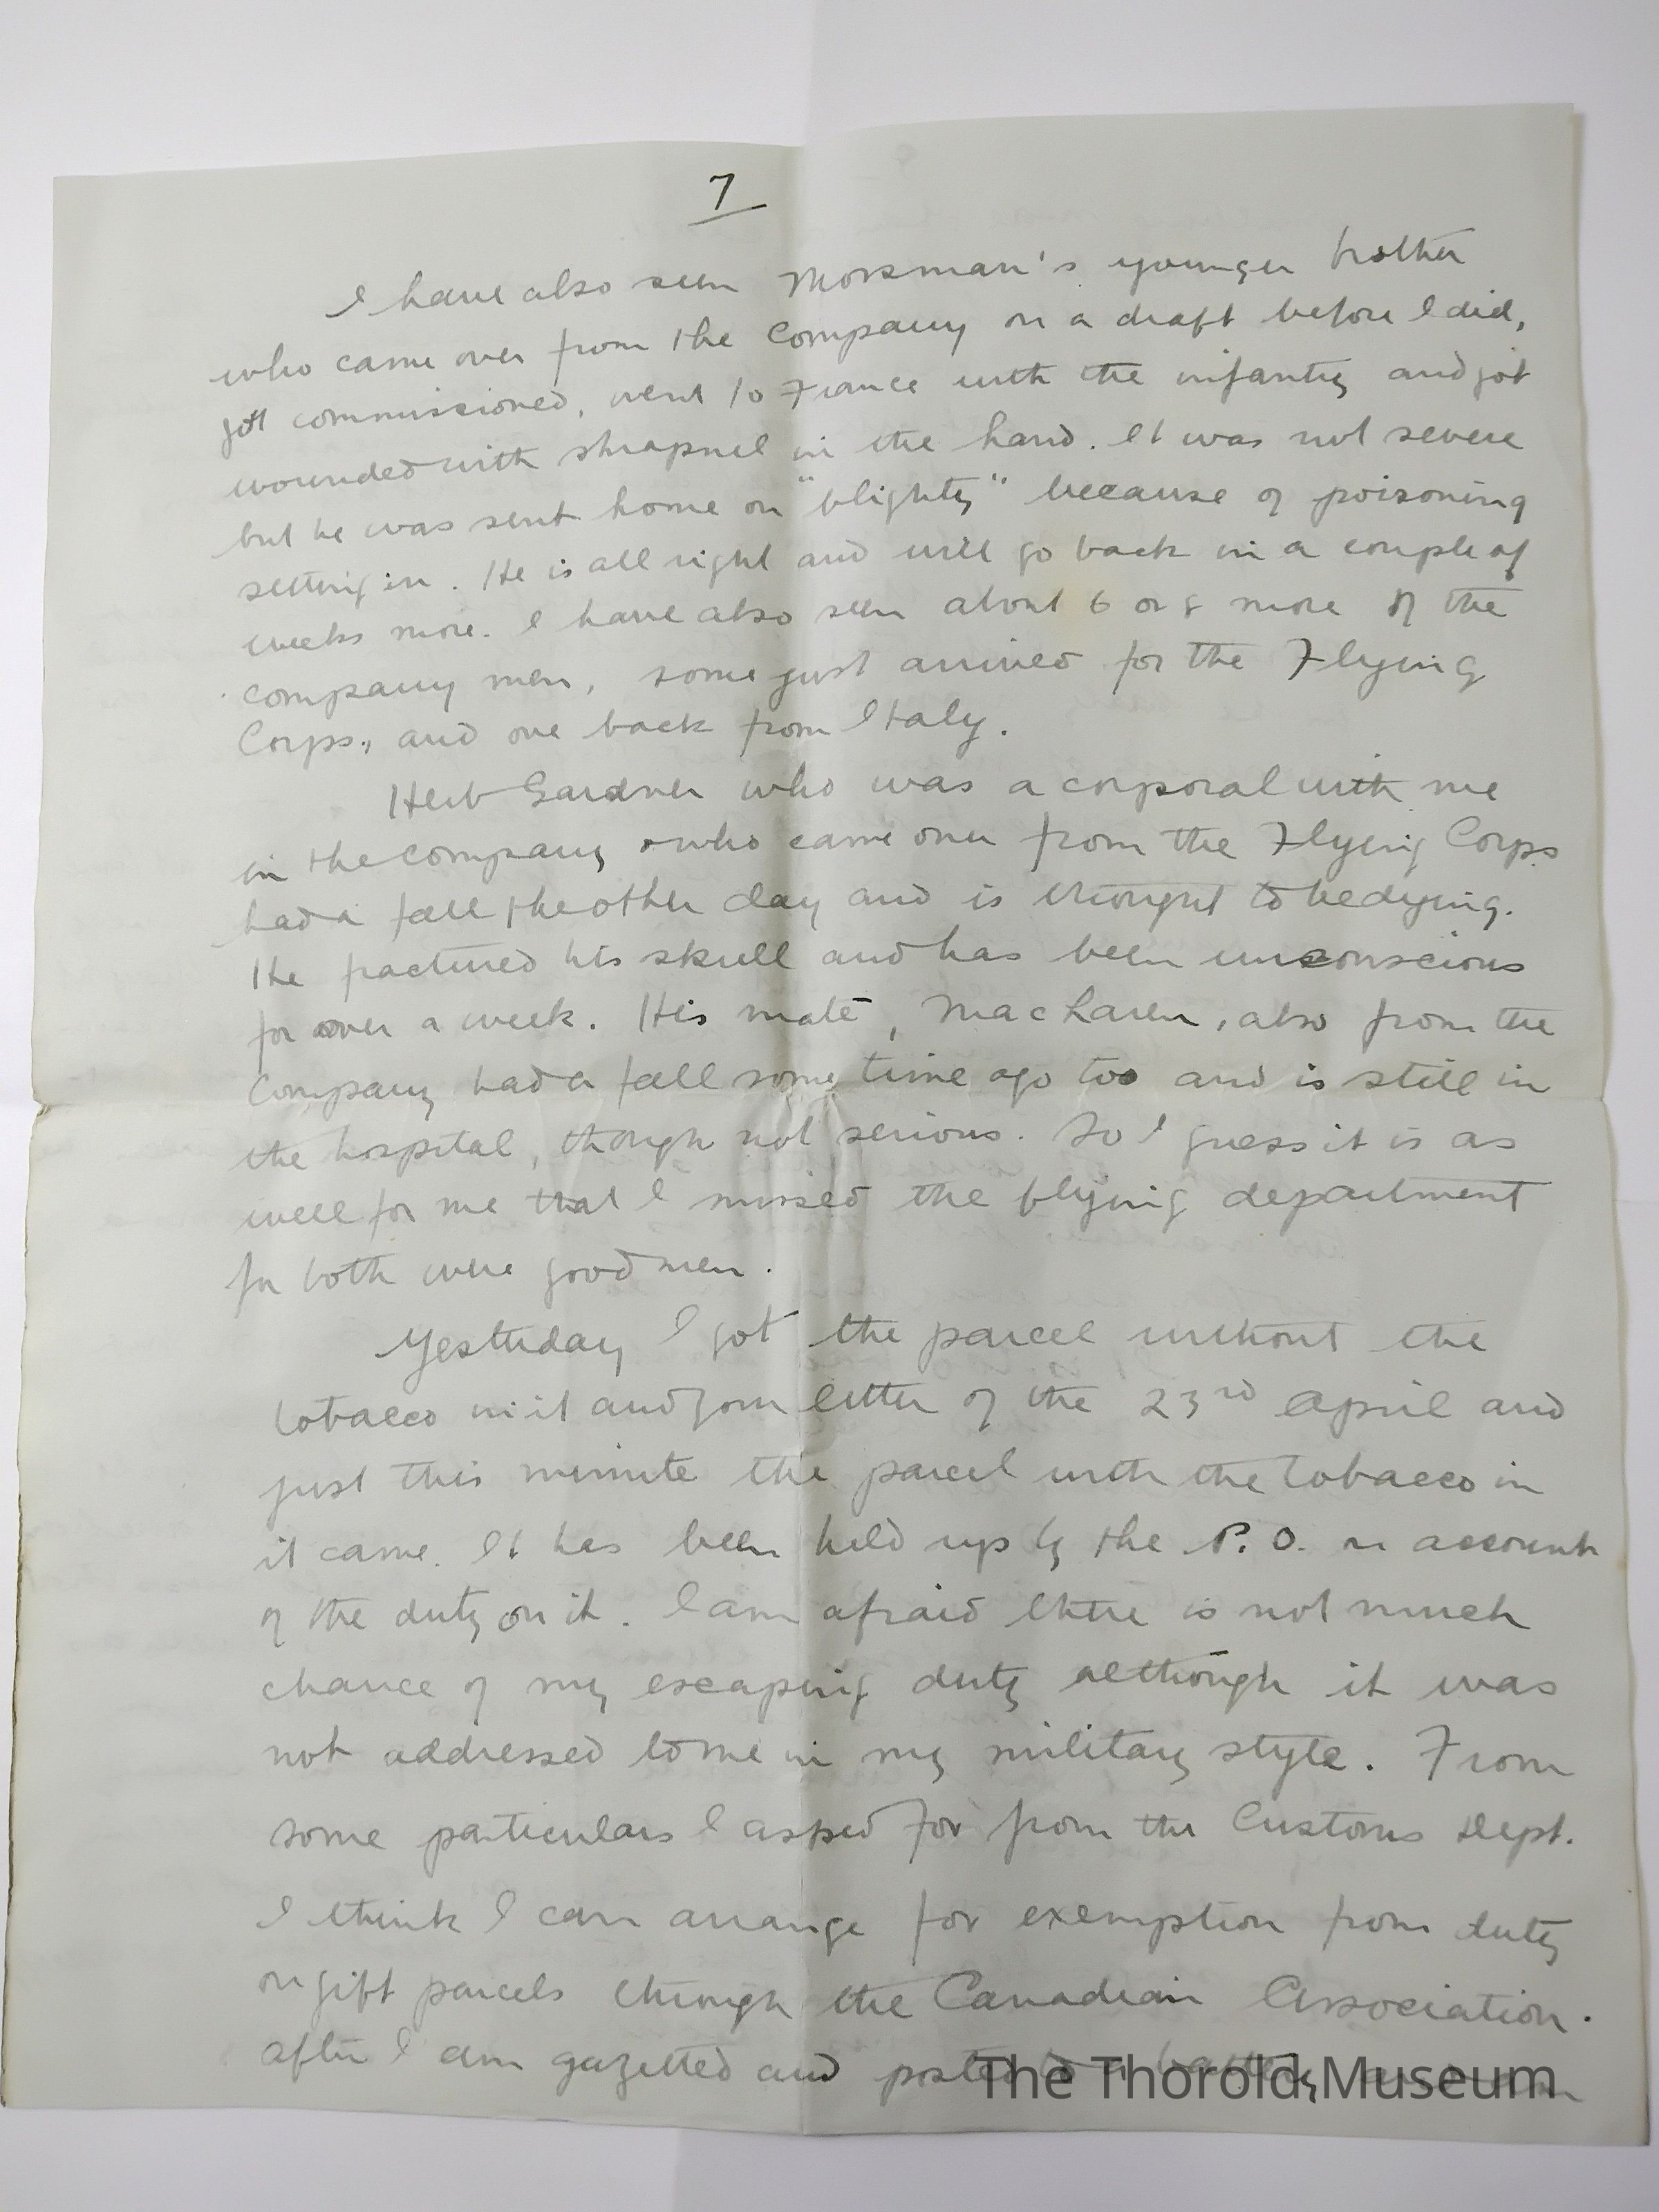 7
I have also seen Morsman's younger brother
who came over from the Company on a draft before I did,
got commissioned, went to France with the infantry and got
wounded with shrapnel in the hand. It was not severe
but he was sent home on "blighty" because of poisoning
setting in. He is all right and will go back in a couple of
weeks more. I have also seen about 6 or 8 more of the
company men, some just arrived for the Flying
Corps., and one back from Italy.
Herb Gardner who was a corporal with me
in the company & who came over from the Flying Corps
had a fall the other day and is thought to be dying.
He fractured his skull and has been unconscious
for over a week. His mate, MacLaren, also from the
Company had a fall some time ago too and is still in
the hospital, though not serious. So I guess it is as
well for me that I missed the flying department
for both were good men.
Yesterday I got the parcel without the
tobacco in it and your letter of the 23rd April and
just this minute the parcel with the tobacco in
it came. It has been held up by the P.O. on account
of the duty on it. I am afraid there is not much
chance of my escaping duty although it was
not addressed to me in my military style. From
some particulars I asked for from the Customs Dept.
I think I can arrange for exemption from duty
on gift parcels through the Canadian Association.
after I am gazetted and posted to a battery
The Thorold Museum